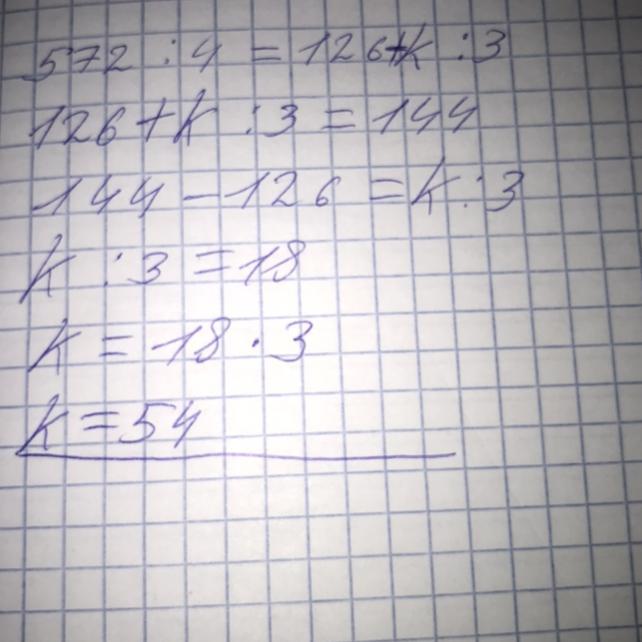 572 : 4 = 126+k : 3
126+k : 3 = 144
144 - 126 = k : 3
k : 3 = 18
k = 18 · 3
k = 54